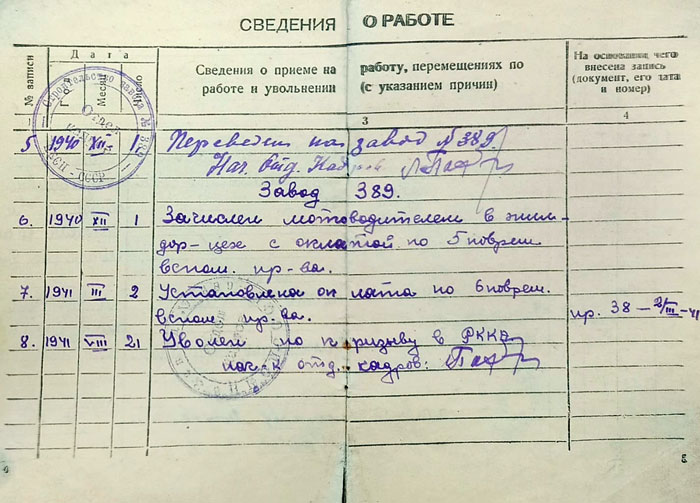 СВЕДЕНИЯ О РАБОТЕ
№ записи
Дата
Месяц
Число
Сведения о приеме на работу, перемещениях по
работе и увольнении (с указанием причин)
На основании чего
внесена запись
(документ, его дата
и номер)
1 3 4
5 1940 XII 1 Переведен на завод №389.
Нач. Отд. Кадров
Завод 389.
6. 1940 XII 1 Зачислен мотоводителем в
дор-цехе с оплатой по 5 поврем.
вспом. пр-ва.
7. 1941 III 2 Установлена оплата по 6 поврем.
вспом. пр-ва.
пр. 38 — 2/III-41
8. 1941 VIII 21 Уволен по призыву в РККА
нач-к отд. кадров:
Строительство завода № 389
Отдел кадров
СССР
4 5